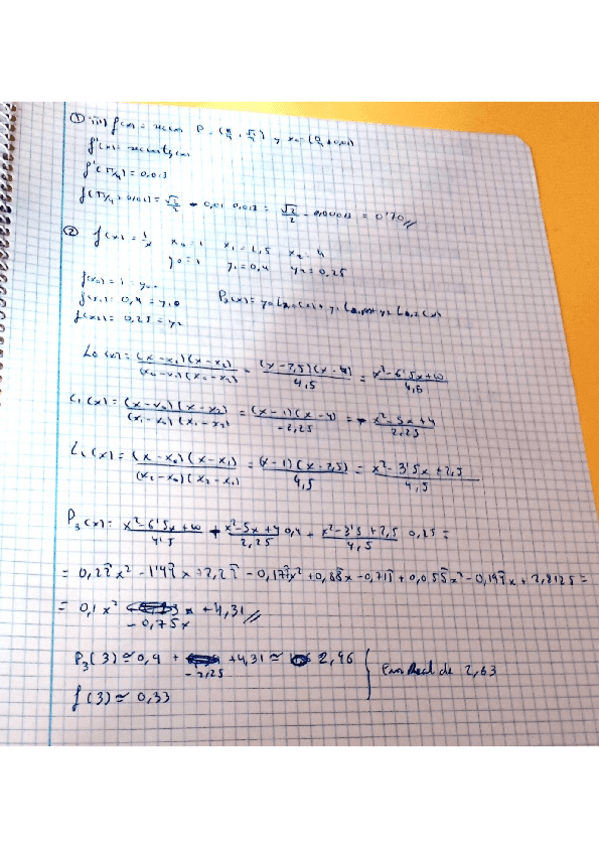 ① iii) f(x) = sen x P = (π/4, √2/2) y x₀ = (π/4 + 0,01)
f'(π/4) = 0,013
f(π/4 + 0,01) = √2/2 + 0,01 · 0,013 = √2/2 - 0,00013 = 0'70
② f(x) = 1/x x₀ = 1 x₁ = 2,5 x₂ = 4
y₀ = 1 y₁ = 0,4 y₂ = 0,25
f(x₀) = 1 = y₀
f(x₁) = 0,4 = y₁ P₂(x) = y₀ L₂,₀(x) + y₁ L₂,₁(x) + y₂ L₂,₂(x)
f(x₂) = 0,25 = y₂
L₀(x) = (x - x₁)(x - x₂) / (x₀ - x₁)(x₀ - x₂) = (x - 2,5)(x - 4) / 4,5 = x² - 6'5x + 10 / 4,5
L₁(x) = (x - x₀)(x - x₂) / (x₁ - x₀)(x₁ - x₂) = (x - 1)(x - 4) / -2,25 = - x² - 5x + 4 / 2,25
L₂(x) = (x - x₀)(x - x₁) / (x₂ - x₀)(x₂ - x₁) = (x - 1)(x - 2,5) / 4,5 = x² - 3'5x + 2,5 / 4,5
P₃(x) = x² - 6'5x + 10 / 4'5 + x² - 5x + 4 / 2,25 0,4 + x² - 3'5 + 2,5 / 4,5 0,25 =
= 0,22x² - 1'44x + 2,22 - 0,177x² + 0,88x - 0,711 + 0,055x² - 0,194x + 2,8125 =
= 0,1x² - 0,75x + 4,31
P₃(3) ≃ 0,9 - 2,25 + 4,31 ≃ 2,96
Real de 2,63
f(3) ≃ 0,33